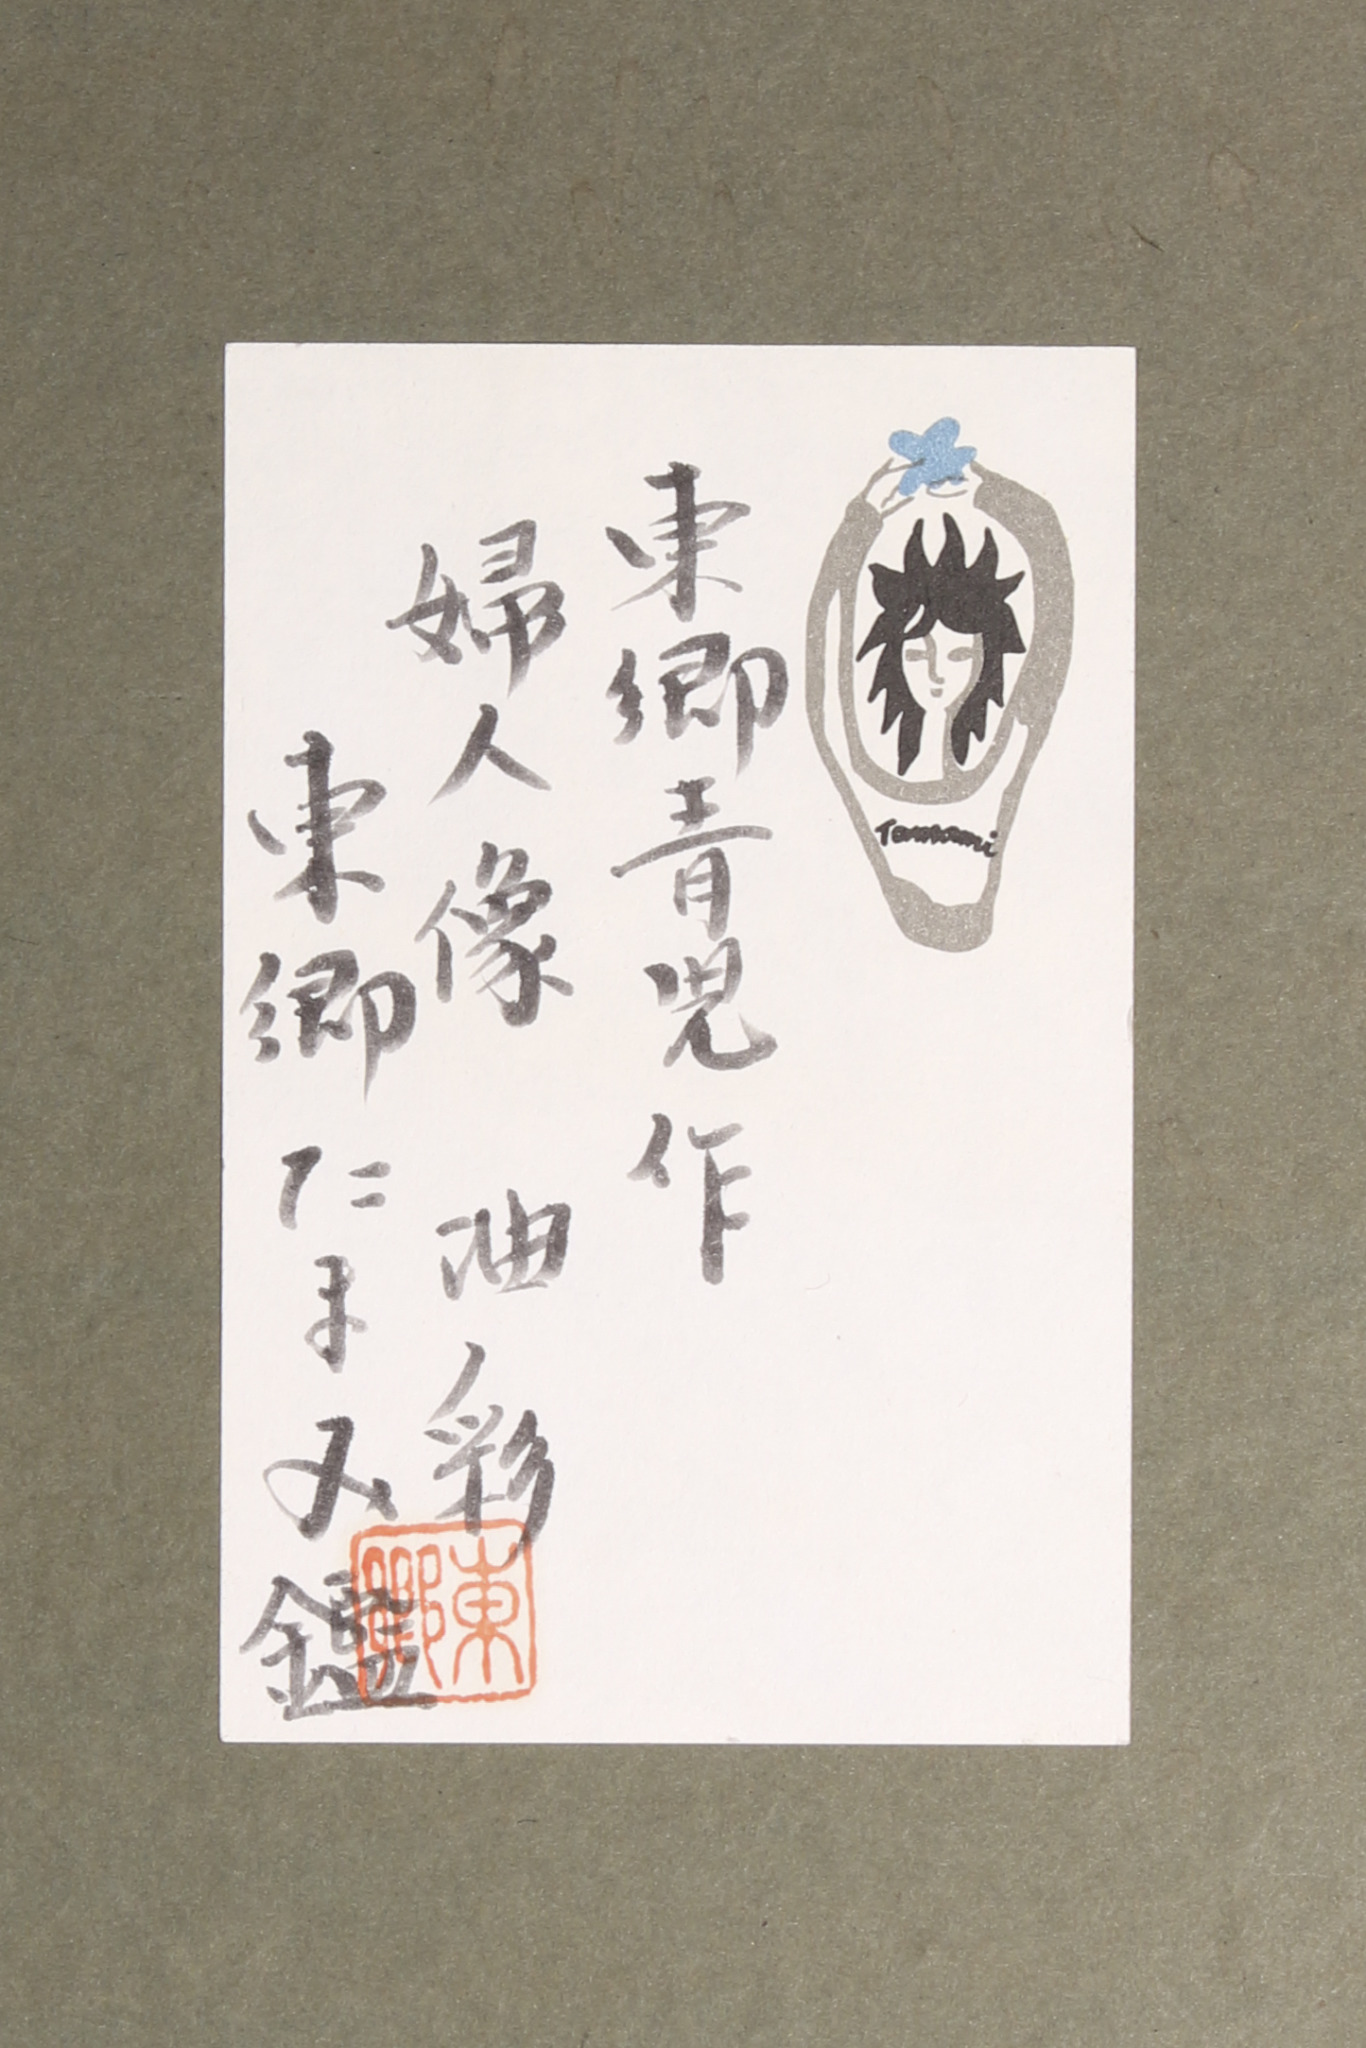 Tamami
東郷青児作
婦人像 油彩
東郷たまみ鑑
東郷